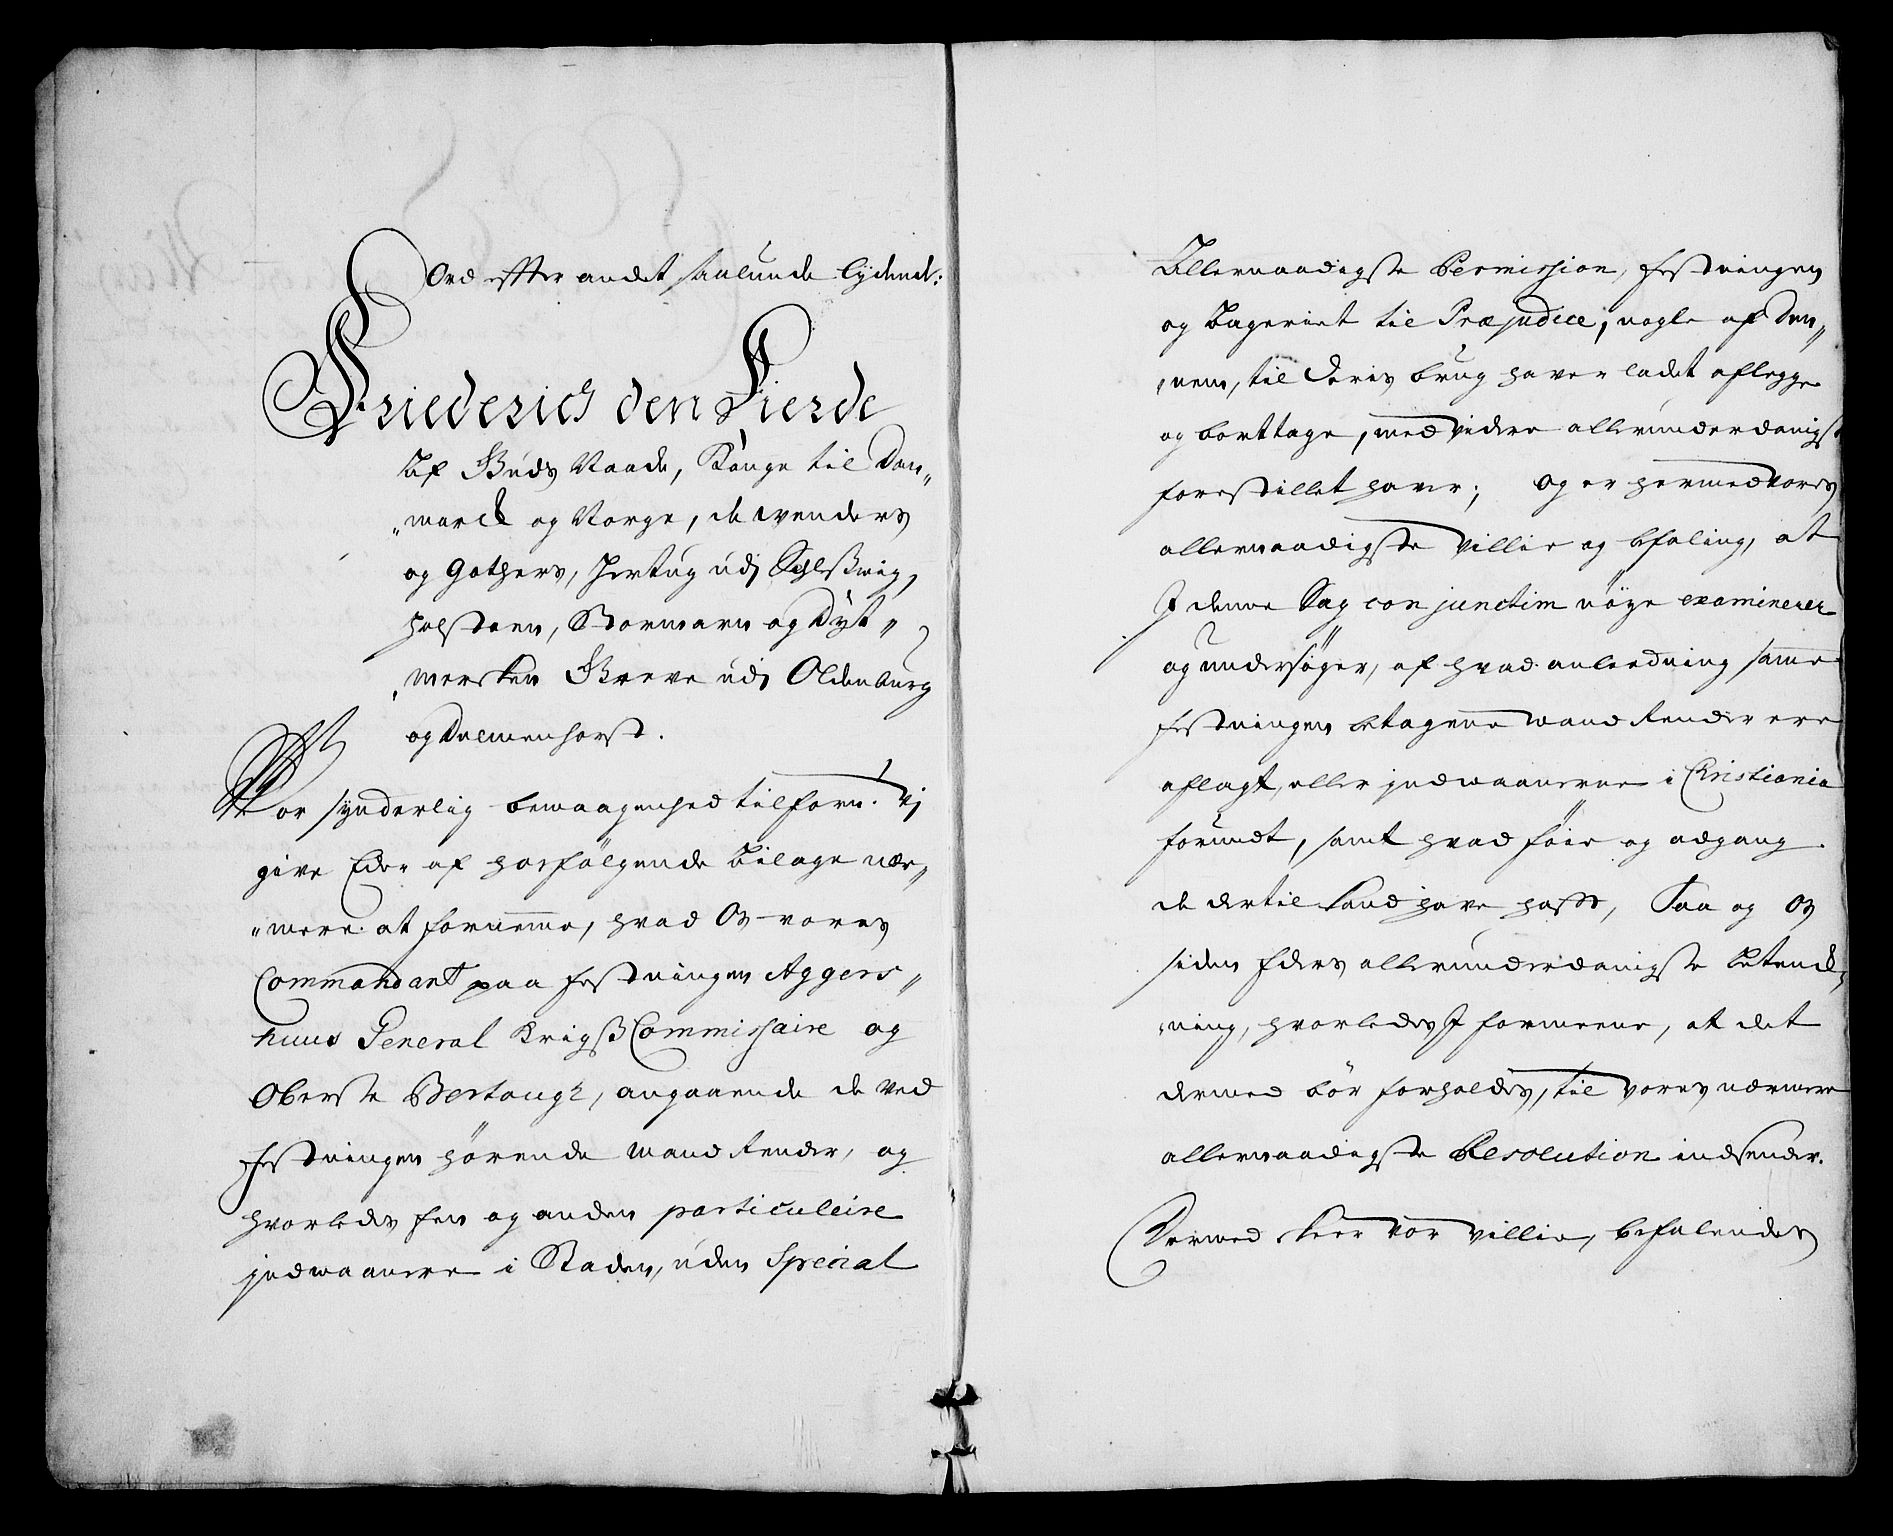 Ord effter andet saalunde lydende:
Friederich den Fierde
Af Guds Naade, Konge til Dan„
„marck og Norge, de wenders
og Gothers, Hertug udj Schleßwig,
Holsteen, Stormarn og Dyt„
„mersken Greve udj Oldenburg
og Delmenhorst.
Vor synderlig bewaagenhed tilforn. Vj
give Eder af hosfölgende Bilage nær„
„mere at fornemme, hvad Os vores
Commandant paa festningen Aggers„
huus General Krigß Commissaire og
Oberste Bertouyh, angaaende de ved
festningen hörende wand Render, og
hvorledes Een og anden particuleire
jndwaanere i Staden, uden Special
Allernaadigste Permission, festningen
og Bageriet til Præjudice, nogle af den„
„nem, til deris brug haver ladet aflegge
og borttage, med videre allerunderdanigst
forestillet haver; Og er hermed vores
allernaadigste Villie og befaling, at
J denne Sag conjunctim nöye examinerer
og undersöger, af hvad anleedning samme
festningen betagene wand Render ere
aflagt, eller jndwaanerne i Christiania
forundt, samt hvad föie og adgang
de dertil kand have hafft, Saa og Os
siden Eders allerunderdanigste Betænck„
„ning, hvorledes J formeene, at det
dermed bör forholdes, til vores nærmere
allernaadigste Resolution indsender.
Dermed skeer vor Villie, befalendes